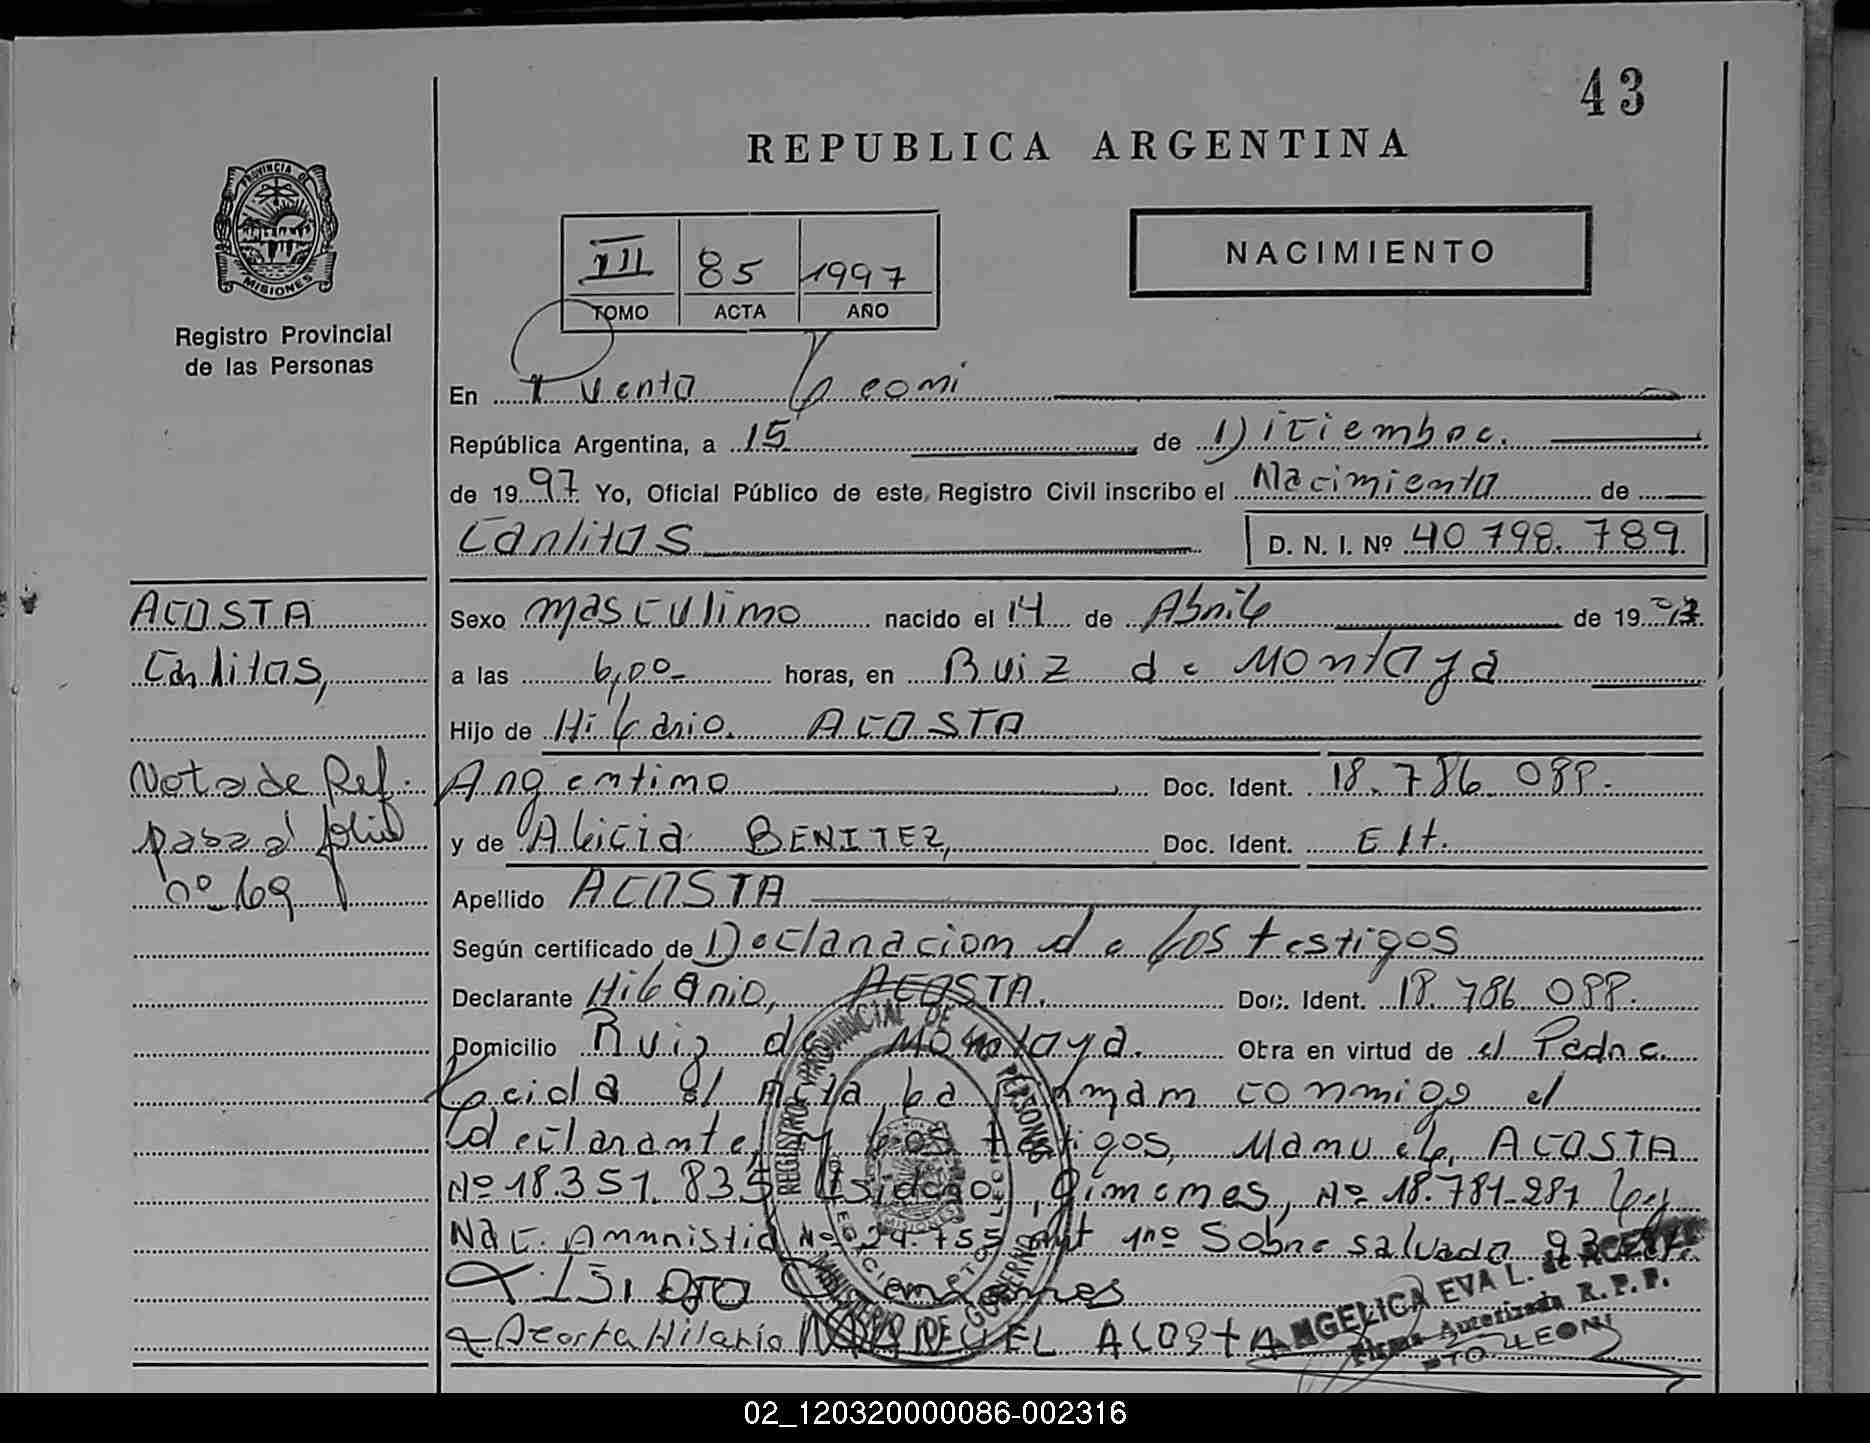 43
REPUBLICA ARGENTINA
PROVINCIA DE
MISIONES
Registro Provincial
de las Personas
III 85 1997
TOMO ACTA AÑO
NACIMIENTO
En Puerto Leoni
República Argentina, a 15 de Diciembre.
de 1997 Yo, Oficial Público de este Registro Civil inscribo el Nacimiento de
Carlitos D. N. I. Nº 40 798. 789
ACOSTA
Carlitos,
Nota de Ref.
pasa al folio
nº 69
Sexo masculino nacido el 14 de Abril de 19
a las 6,00 horas, en Ruiz de Montoya
Hijo de Hilario. ACOSTA
Argentino Doc. Ident. 18.786.088.
y de Alicia BENITEZ, Doc. Ident. Elt.
Apellido ACOSTA
Según certificado de Declaracion de los testigos
Declarante Hilario, ACOSTA. Doc. Ident. 18.786.088.
Domicilio Ruiz de Montoya. Obra en virtud de el Padre.
Leida el Acta, la firman conmigo el
declarante, y los testigos, Manuel, ACOSTA
Nº 18.351.835 Isidoro, Gimenes, Nº 18.781-281 Ley
Nac. Amnistia Nº 24.755 Art 1ro Sobre salvado 93
Acosta Hilario MANUEL ACOSTA
REGISTRO PROVINCIAL DE LAS PERSONAS
MINISTERIO DE GOBIERNO
MISIONES
ANGELICA EVA L. de
Firma Autorizada R. P. P.
PTO LEONI
02_120320000086-002316